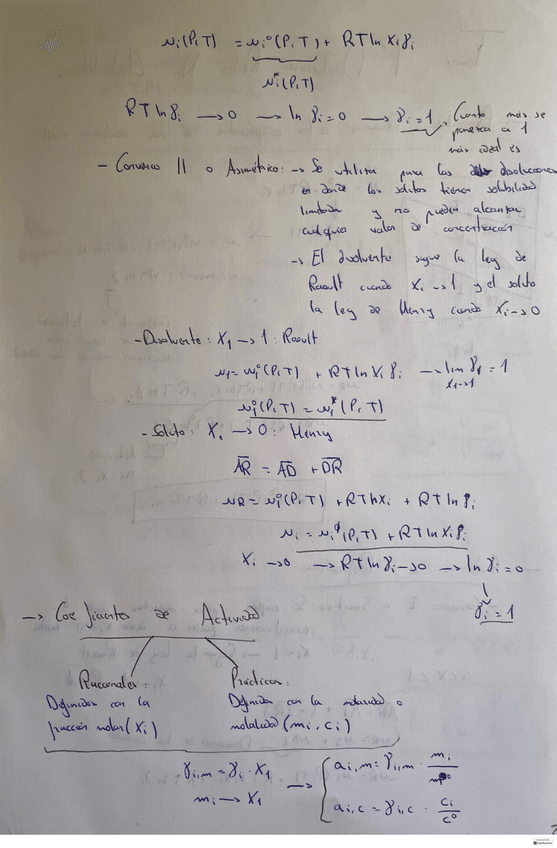 μi(P,T) = μi°(P,T) + RT ln Xi γi
μi*(P,T)
RT ln γi → 0 → ln γi = 0 → γi = 1 Cuanto más se
parezca a 1
más ideal es
- Convenio II o Asimétrico: → Se utiliza para las disoluciones
en donde los solutos tienen solubilidad
limitada y no pueden alcanzar
cualquier valor de concentración
→ El disolvente sigue la ley de
Raoult cuando Xi → 1 y el soluto
la ley de Henry cuando Xi → 0
- Disolvente: X1 → 1: Raoult
μ1 = μi°(P,T) + RT ln Xi γi → lim γ1 = 1
x1→1
μi°(P,T) = μi*(P,T)
- Soluto: Xi → 0: Henry
AR = AD + DR
μR = μi°(P,T) + RT ln Xi + RT ln γi
μi = μi°(P,T) + RT ln Xi γi
Xi → 0 → RT ln γi → 0 → ln γi = 0
γi = 1
→ Coeficientes de Actividad
Racionales: Prácticos:
Definidos con la Definidos con la molaridad o
fracción molar (Xi) molalidad (mi, ci)
γi,m = γi · X1 → ai,m = γi,m · mi/m°
mi → X1 ai,c = γi,c · ci/c°